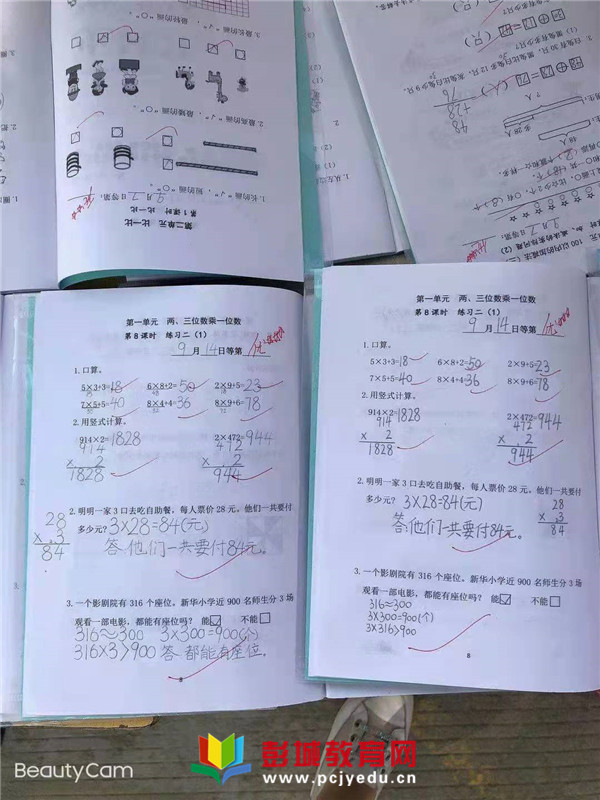 3. 最长的画"√"，最短的画"○"。
2. 最高的画"√"，最矮的画"○"。
1. 长的画"√"，短的画"○"。
9月7日等第
第1课时 比一比
第二单元 比一比
第一单元 两、三位数乘一位数
第8课时 练习二（1）
9月14日等第 优
1.口算。
5×3+3=18 6×8+2=50 2×9+5=23
7×5+5=40 8×4+4=36 8×9+6=78
2.用竖式计算。
914×2=1828 2×472=944
914 472
× 2 × 2
1828 944
2.明明一家3口去吃自助餐，每人票价28元。他们一共要付
多少元？3×28=84(元)
28
× 3
84
答:他们一共要付84元。
3.一个影剧院有316个座位。新华小学近900名师生分3场
观看一部电影，都能有座位吗？ 能☑ 不能□
316≈300 3×300=900(个)
316×3>900 答:都能有座位。
8
第一单元 两、三位数乘一位数
第8课时 练习二（1）
9月14日等第 优
1.口算。
5×3+3=18 6×8+2=50 2×9+5=23
7×5+5=40 8×4+4=36 8×9+6=78
2.用竖式计算。
914×2=1828 2×472=944
914 472
× 2 × 2
1828 944
2.明明一家3口去吃自助餐，每人票价28元。他们一共要付
多少元？3×28=84(元)
28
× 3
84
答:他们一共要付84元。
3.一个影剧院有316个座位。新华小学近900名师生分3场
观看一部电影，都能有座位吗？ 能☑ 不能□
316≈300
3×300=900(个)
3×316>900
8
BeautyCam
彭城教育网
www.pcjyedu.cn